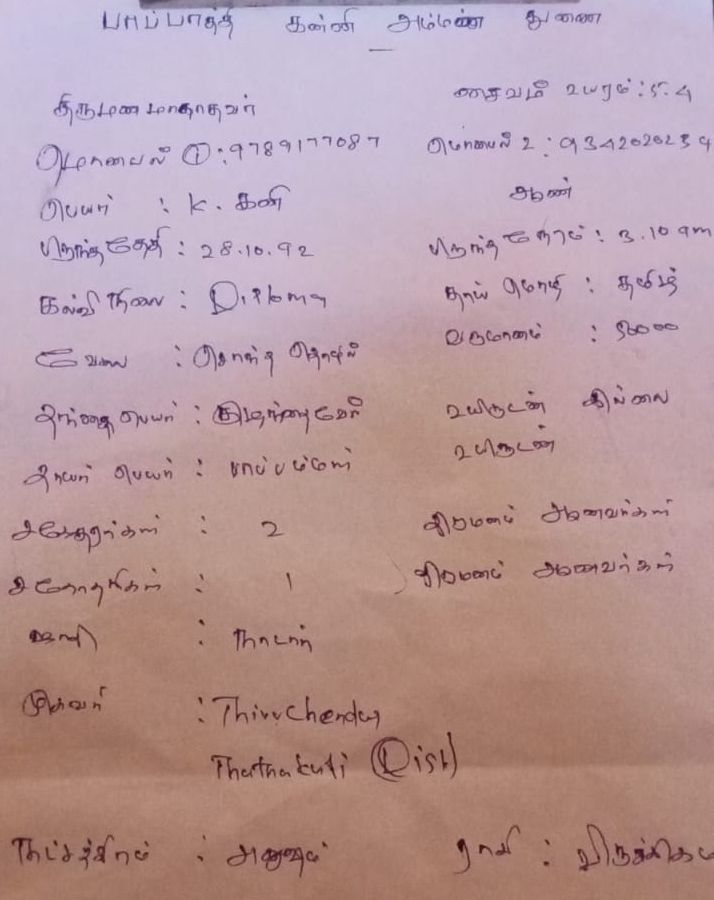 பாப்பாத்தி கன்னி அம்மண் துணை
திருமணமாகாதவர் சைவம் உயரம் : 5.4
மொபைல் ① : 9789177087 மொபைல் 2 : 9342020239
பெயர் : K. கனி ஆண்
பிறந்த தேதி : 28.10.92 பிறந்த நேரம் : 3.10 am
கல்வி நிலை : Diploma தாய் மொழி : தமிழ்
வேலை : சொந்த தொழில் வருமானம் :
தந்தை பெயர் : உயிருடன் இல்லை
தாயார் பெயர் : பாப்பம்மாள் உயிருடன்
சகோதரர்கள் : 2 திருமணம் ஆனவர்கள்
சகோதரிகள் : 1 திருமணம் ஆனவர்கள்
: நாடார்
முகவரி : Thiruchendur
Thathukuti (Dist)
நட்சத்திரம் : அனுஷம் ராசி :